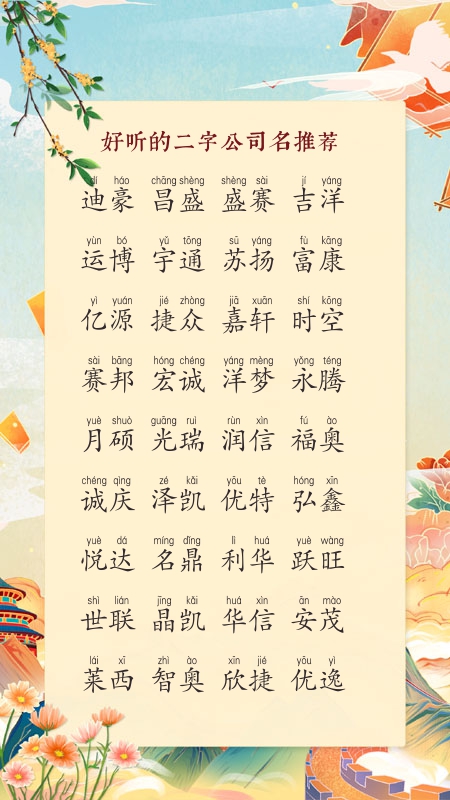 好听的二字公司名推荐
dí háo chāng shèng shèng sài jí yáng
迪豪 昌盛 盛赛 吉洋
yùn bó yǔ tōng sū yáng fù kāng
运博 宇通 苏扬 富康
yì yuán jié zhòng jiā xuān shí kōng
亿源 捷众 嘉轩 时空
sài bāng hóng chéng yáng mèng yǒng téng
赛邦 宏诚 洋梦 永腾
yuè shuò guāng ruì rùn xìn fú ào
月硕 光瑞 润信 福奥
chéng qìng zé kǎi yōu tè hóng xīn
诚庆 泽凯 优特 弘鑫
yuè dá míng dǐng lì huá yuè wàng
悦达 名鼎 利华 跃旺
shì lián jīng kǎi huá xìn ān mào
世联 晶凯 华信 安茂
lái xī zhì ào xīn jié yōu yì
莱西 智奥 欣捷 优逸